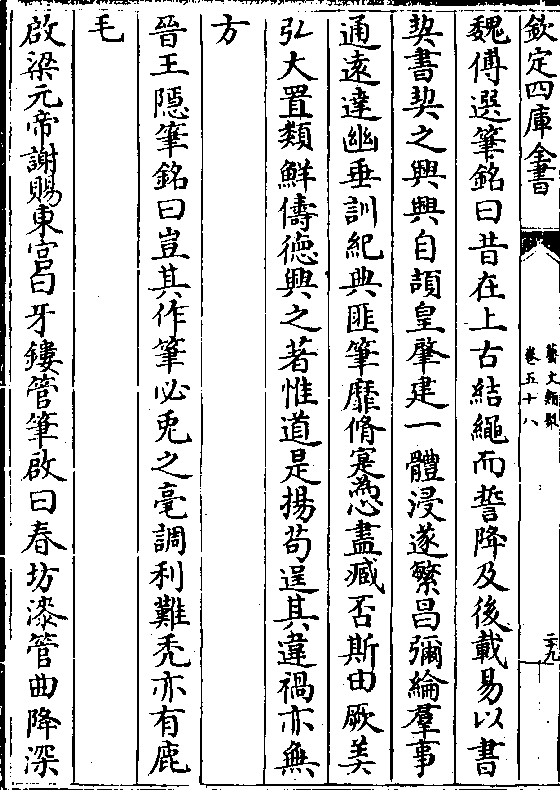 欽定四庫全書
藝文類聚
卷五十八
魏傅選筆銘曰昔在上古結繩而誓降及後載易以書
契書契之興興自頡皇肇建一體浸遂繁昌彌綸羣事
通遠達幽垂訓紀典匪筆靡脩寔為心盡臧否斯由厥美
弘大置類鮮儔德興之著惟道是揚苟逞其違禍亦無
方
晉王隱筆銘曰豈其作筆必兎之毫調利難禿亦有鹿
毛
啟梁元帝謝賜東宮曰牙鏤管筆啟曰春坊漆管曲降深